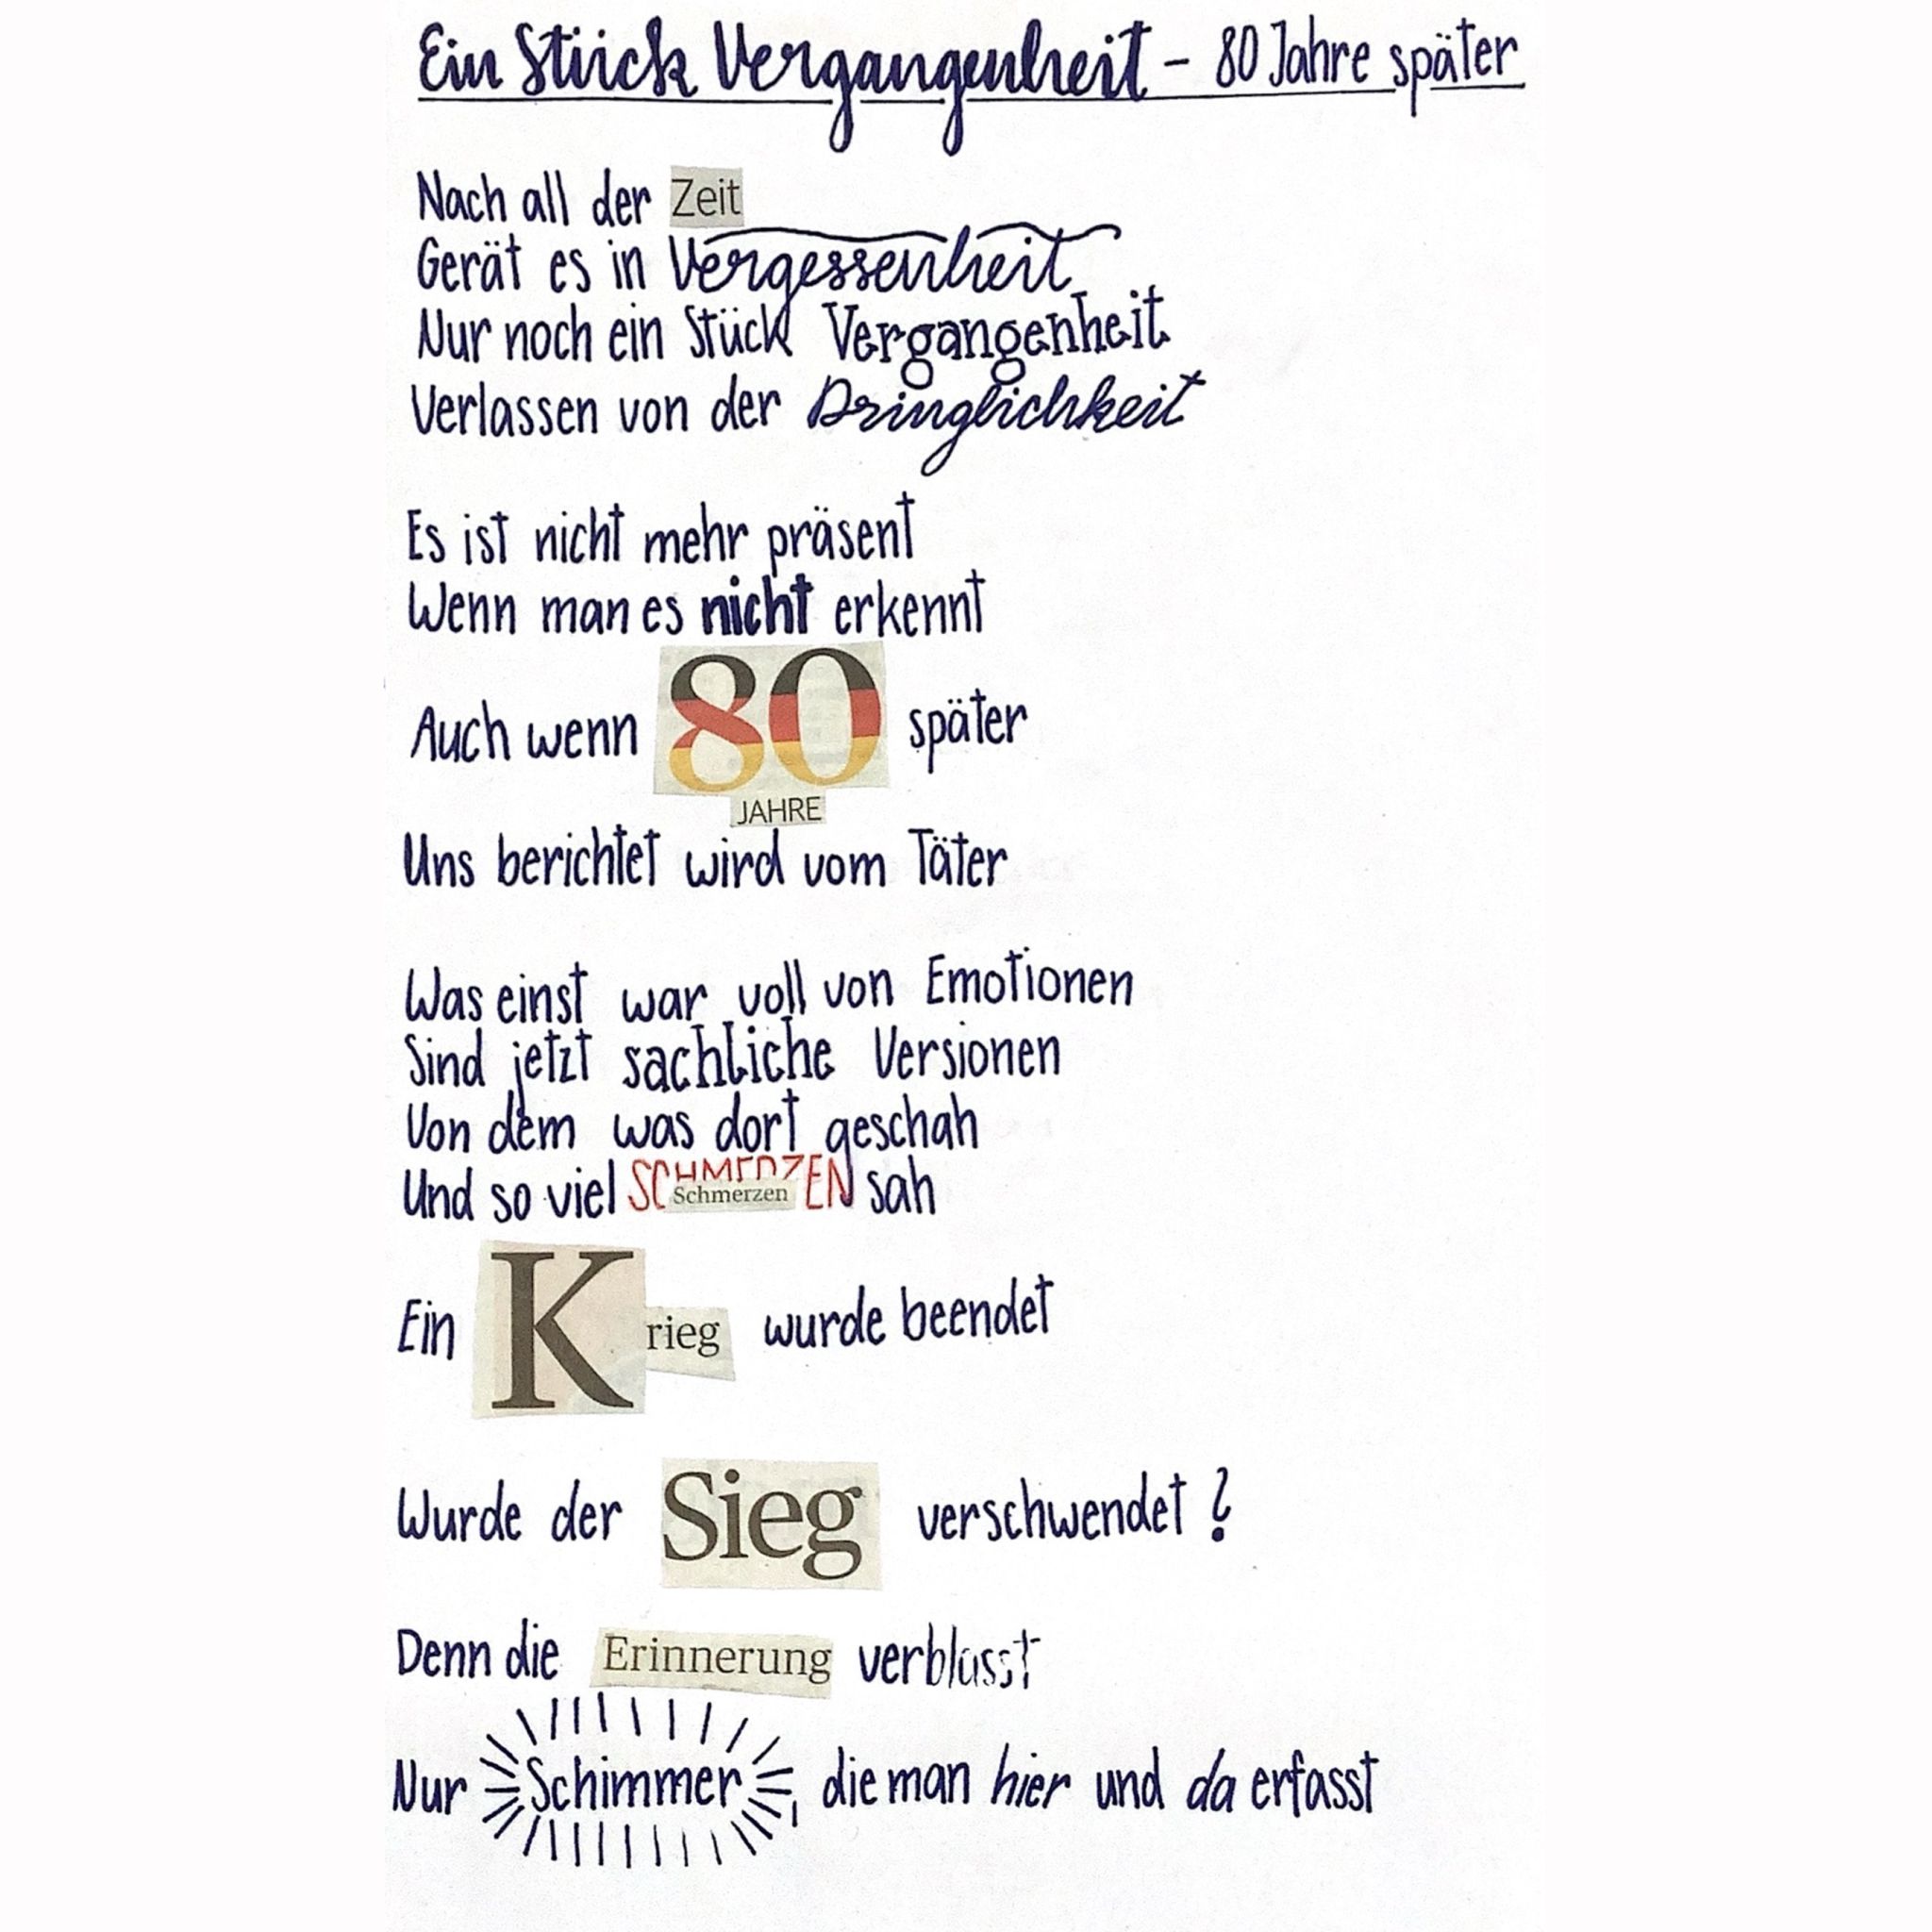 Ein Stück Vergangenheit - 80 Jahre später
Nach all der Zeit
Gerät es in Vergessenheit
Nur noch ein Stück Vergangenheit
Verlassen von der Dringlichkeit
Es ist nicht mehr präsent
Wenn man es nicht erkennt
Auch wenn 80 JAHRE später
Uns berichtet wird vom Täter
Was einst war voll von Emotionen
Sind jetzt sachliche Versionen
Von dem was dort geschah
Und so viel SCHMERZEN Schmerzen sah
Ein Krieg wurde beendet
Wurde der Sieg verschwendet?
Denn die Erinnerung verblasst
Nur Schimmer, die man hier und da erfasst